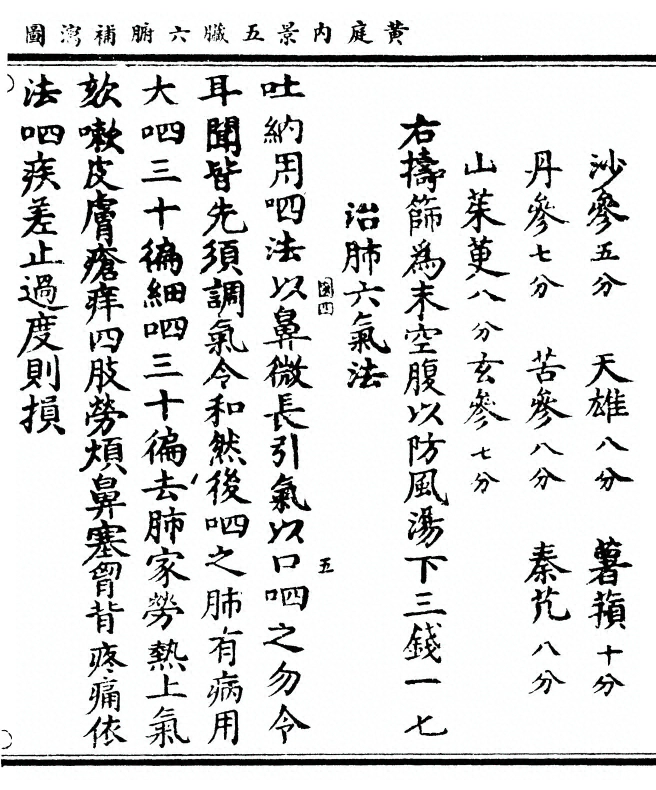 黃庭內景五臟六腑補瀉圖
沙參五分 天雄八分 薯蕷十分
丹參七分 苦參八分 秦艽八分
山茱萸八分玄參七分
右擣篩為末空腹以防風湯下三錢一七
治肺六氣法
圖四
吐納用呬法以鼻微長引氣以口呬之勿令
五
耳聞皆先須調氣令和然後呬之肺有病用
大呬三十徧細呬三十徧去肺家勞熱上氣
欬嗽皮膚瘡痒四肢勞煩鼻塞胷背疼痛依
法呬疾差止過度則損